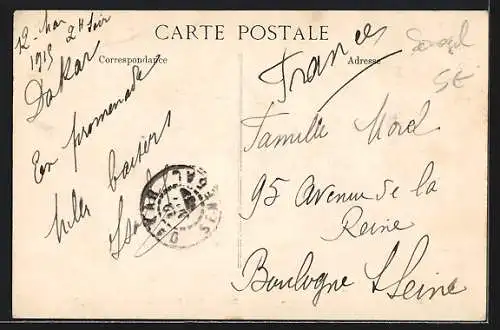 CARTE POSTALE
Correspondance
Adresse
12 Mai
1915 2H Soir
Dakar
En promenade
Mles baisers
DAKAR
SENEGAL
France
Senegal
5E
Famille Morel
95 Avenue de la
Reine
Boulogne s Seine